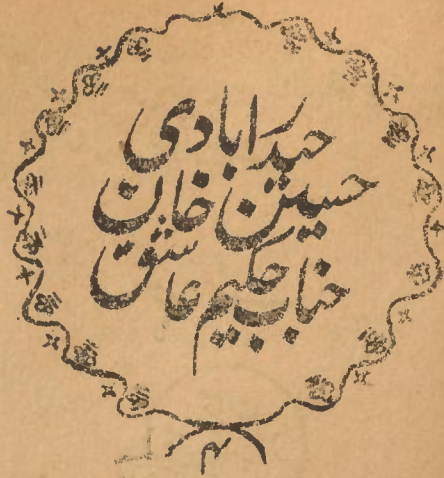 جناب حکیم عاشق
حسین خان
حیدرابادی